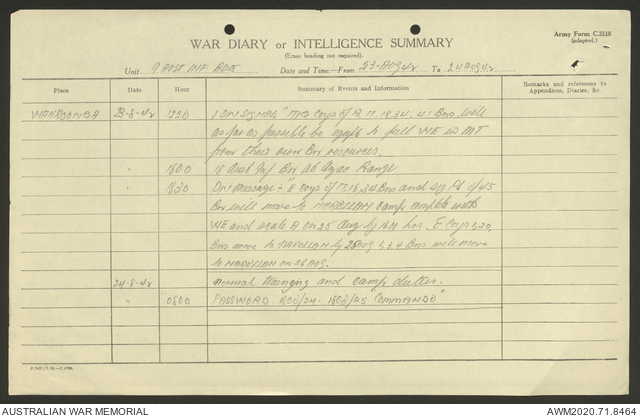 Army Form C.2118
(adapted.)
WAR DIARY or INTELLIGENCE SUMMARY
(Erase heading not required).
Unit 9 AUST INF BDE Date and Time—From 23-Aug 42 To 24 Aug 42
Place Date Hour Summary of Events and Information Remarks and references to Appendices, Diaries, &c.
23-8-42 1200 1 Div Signal "MG Coys of 17, 18, 34, Bns will
as far as possible be equipt to full WE in MT
from their own Bn resources.
" 1800 18 Aust Inf Bn at Range
" 1830 Div message - "E Coys of 17, 18, 34 Bns and Sig Pl of 45
Bn will move to NARELLAN camp complete with
WE and scale A on 25 Aug by hrs. E Coys 1, 20,
Bns move to NARELLAN by Aug 1, 34 Bns will move
to NARELLAN on 26 Aug.
24-8-42 normal training and camp duties.
" 0800 PASSWORD 1800/24 - 1800/25 "COMMANDO"
AUSTRALIAN WAR MEMORIAL
AWM2020.71.8464